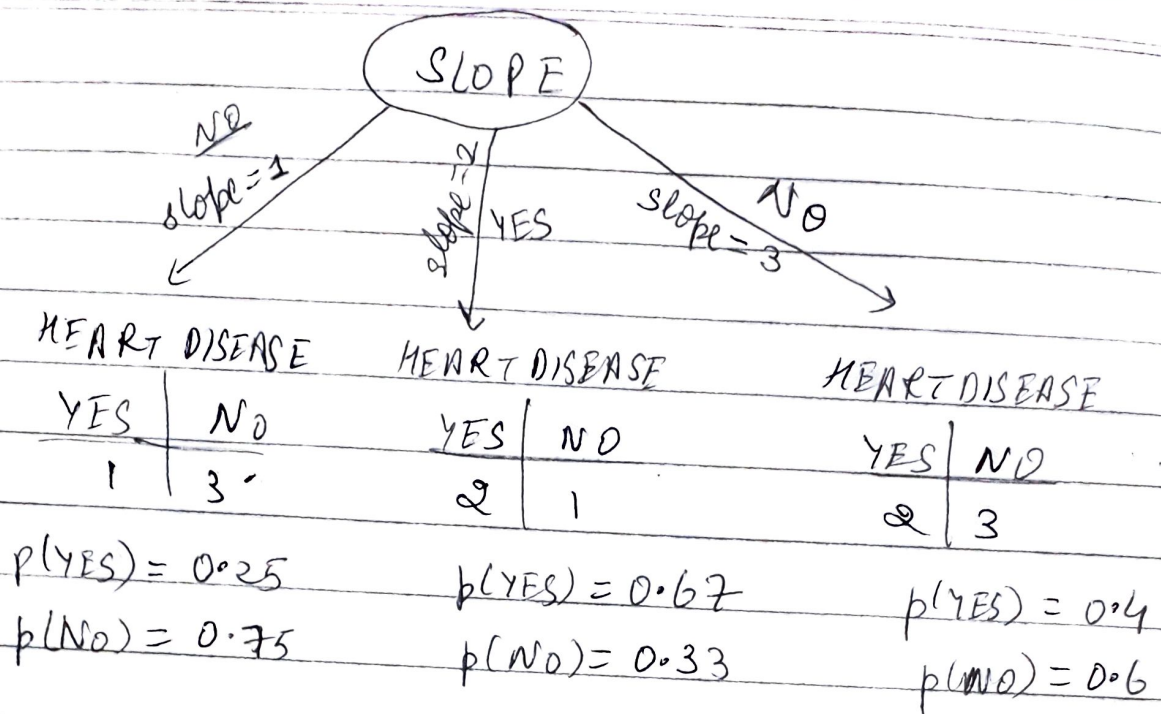 SLOPE
NO
slope=1
slope=2
YES
NO
slope=3
HEART DISEASE
YES NO
1 3
p(YES) = 0.25
p(NO) = 0.75
HEART DISEASE
YES NO
2 1
p(YES) = 0.67
p(NO) = 0.33
HEART DISEASE
YES NO
2 3
p(YES) = 0.4
p(NO) = 0.6